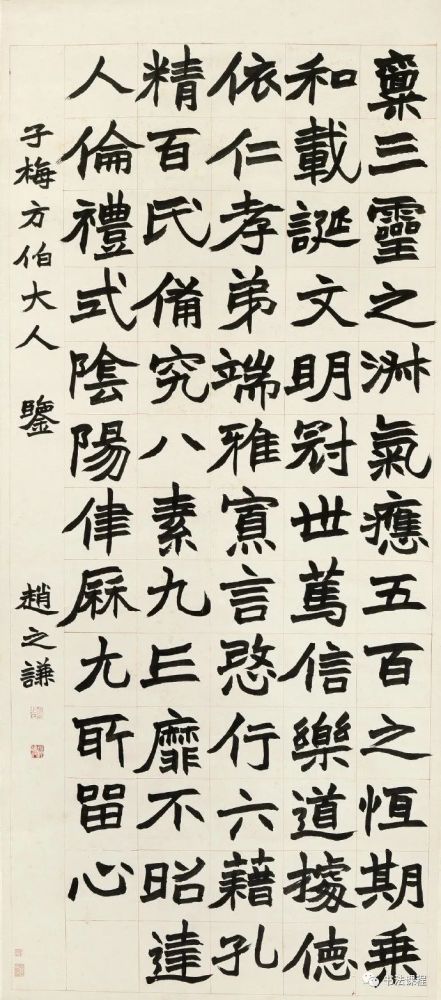 稟三靈之淑氣應五百之恆期乗
和載誕文明冠世篤信樂道據德
依仁孝弟端雅寡言愍行六藉孔
精百氏備究八素九丘靡不昭達
人倫禮式陰陽律厤尤所留心
子梅方伯大人 鑒 趙之謙
书法课程